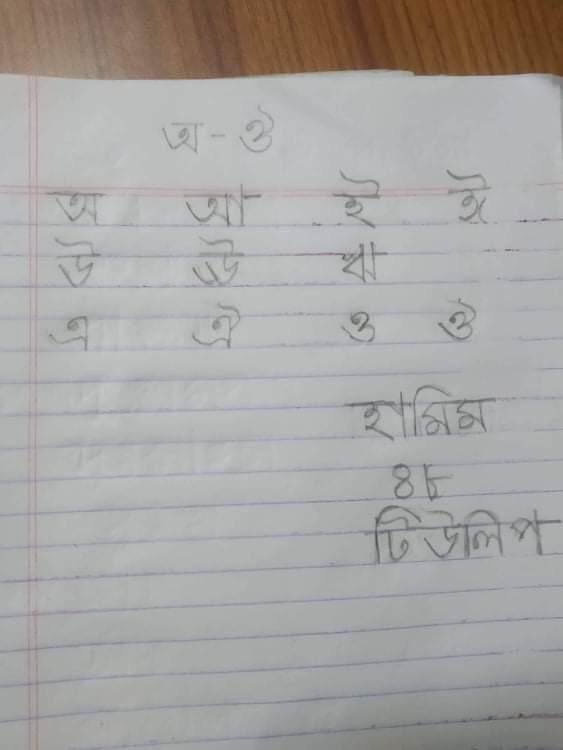 অ - ঔ
অ আ ই ঈ
উ ঊ ঋ
এ ঐ ও ঔ
হামিম
৪৮
টিউলিপ